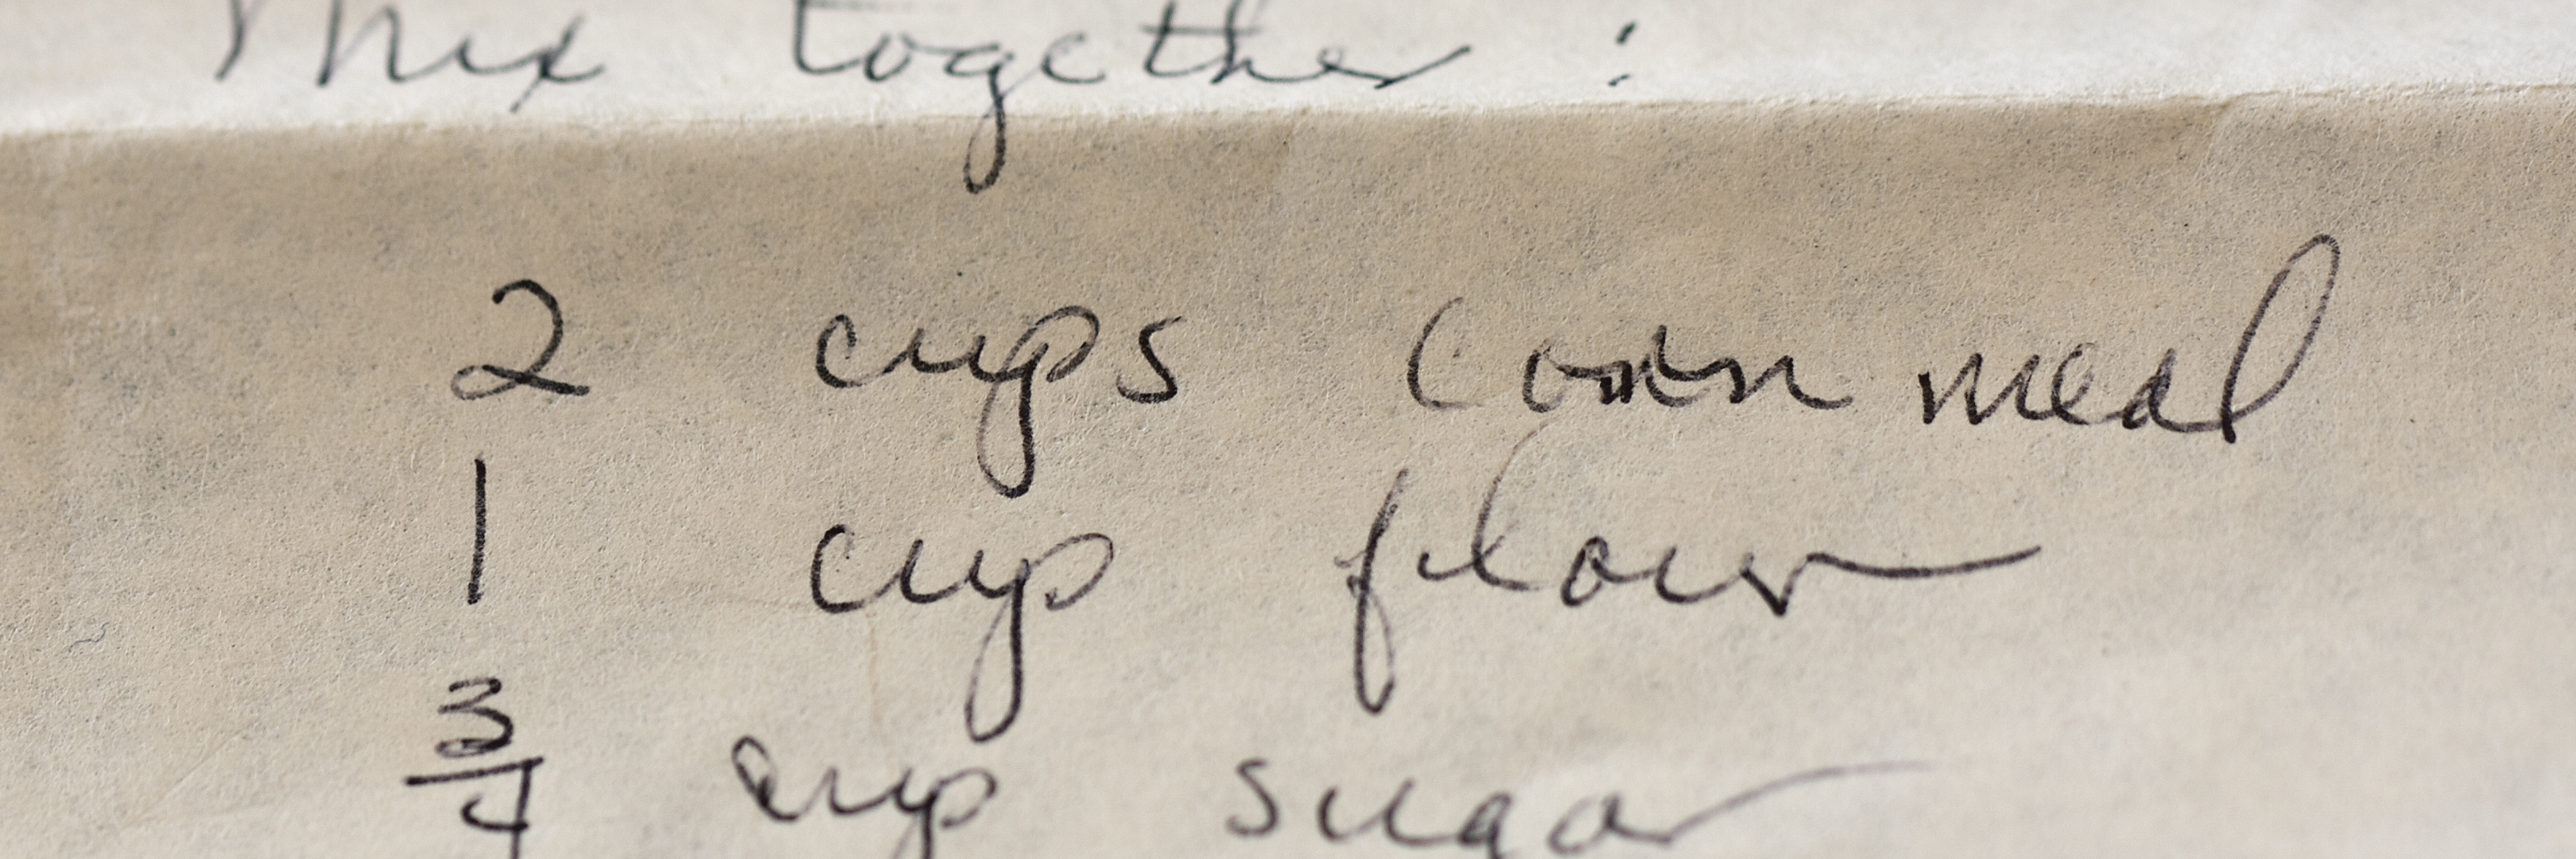 Mix together :
2 cups Corn meal
1 cup flour
3/4 cup sugar